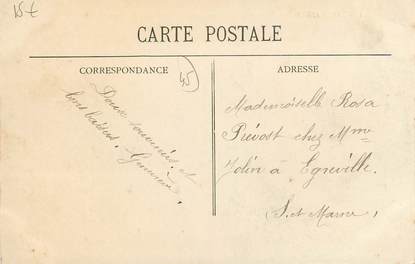 15 €
CARTE POSTALE
CORRESPONDANCE
45
ADRESSE
Doux souvenirs et
bons baisers.
Mademoiselle Rosa
Prévost chez Mme
Jolin à Egreville.
S. et Marne,